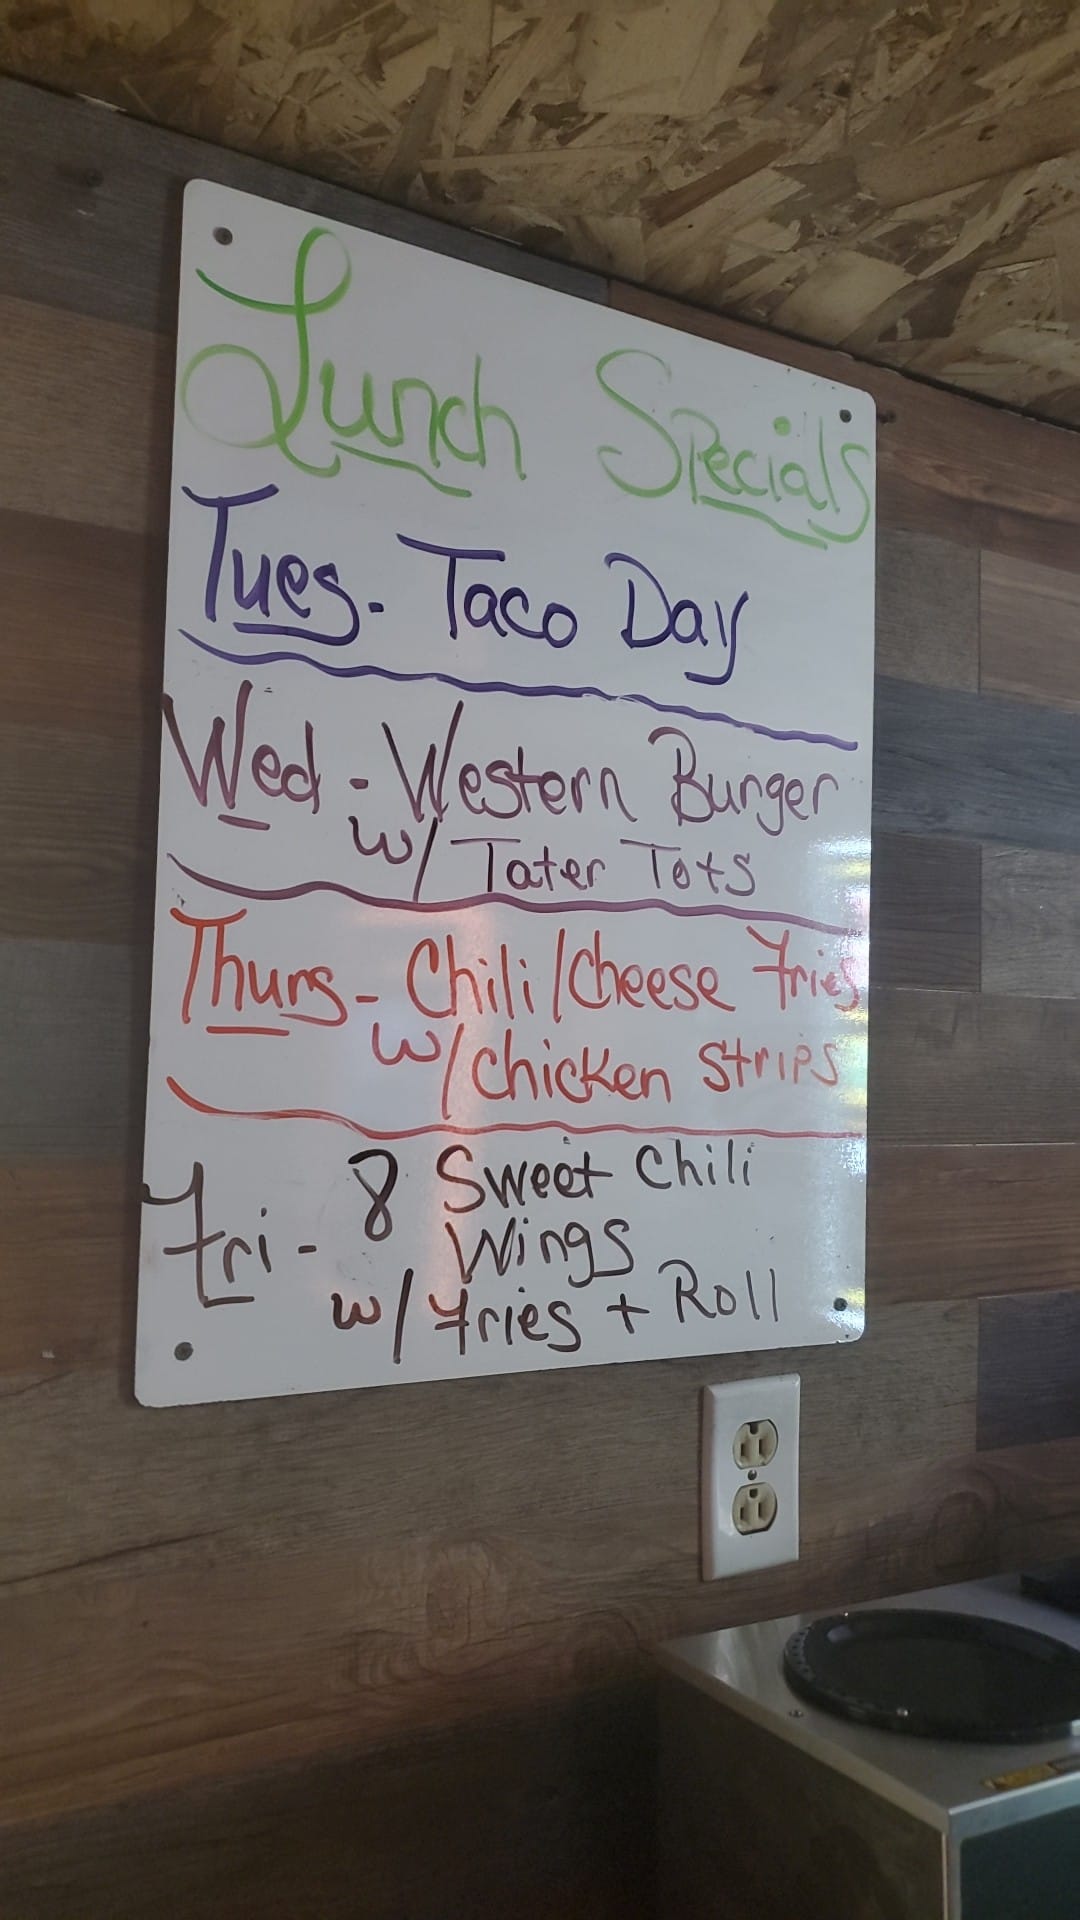 Lunch Specials
Tues. Taco Day
Wed - Western Burger
w/ Tater Tots
Thurs - Chili/Cheese Fries
w/chicken strips
Fri - 8 Sweet Chili
Wings
w/ Fries + Roll